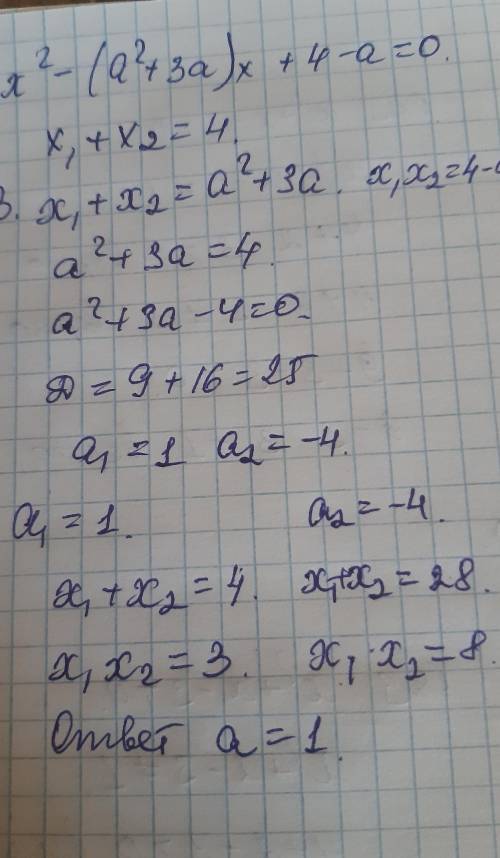 x² - (a² + 3a)x + 4 - a = 0.
x₁ + x₂ = 4.
3. x₁ + x₂ = a² + 3a. x₁x₂ = 4 -
a² + 3a = 4.
a² + 3a - 4 = 0.
D = 9 + 16 = 25
a₁ = 1 a₂ = -4.
a₁ = 1. a₂ = -4.
x₁ + x₂ = 4. x₁ + x₂ = 28.
x₁ x₂ = 3. x₁ · x₂ = 8.
Ответ a = 1.